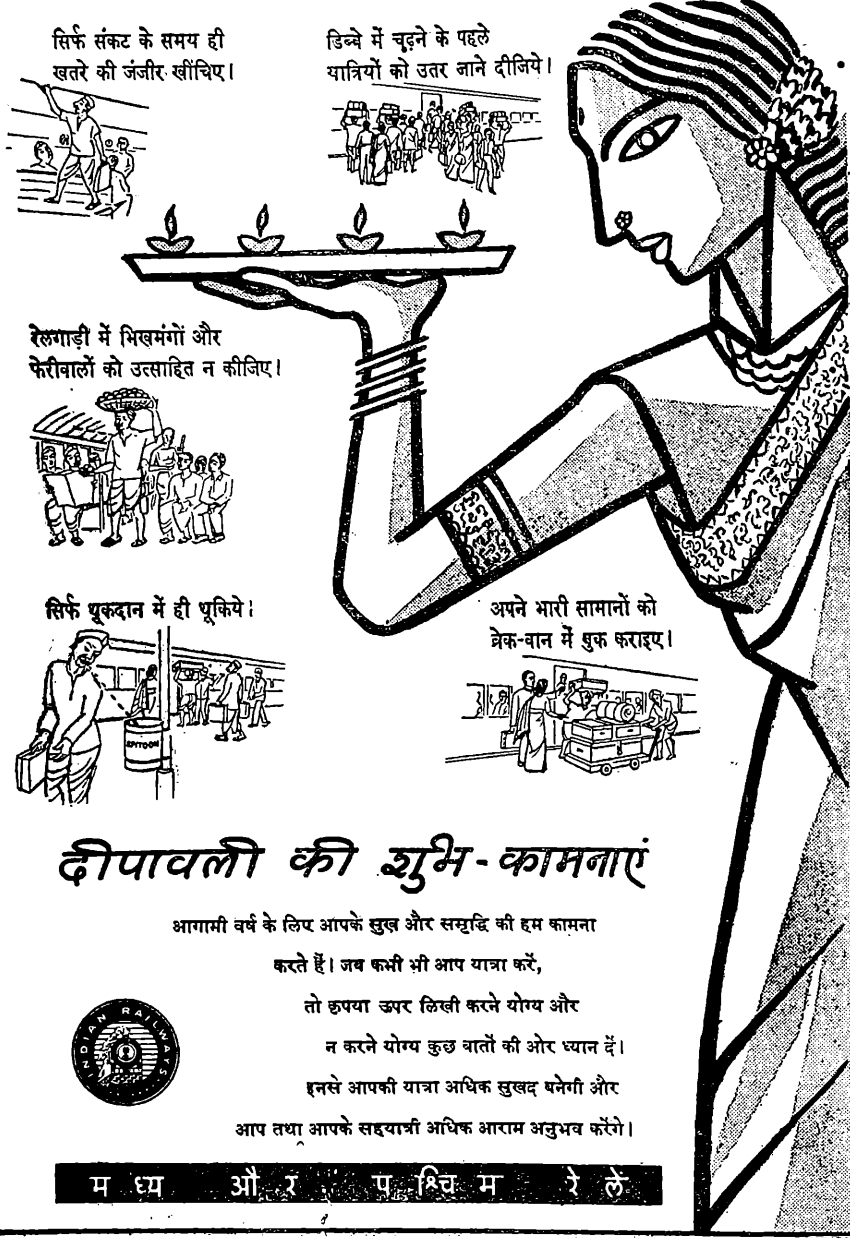 सिर्फ संकट के समय ही
खतरे की जंजीर खींचिए।
डिब्बे में चढ़ने के पहले
यात्रियों को उतर जाने दीजिये।
रेलगाड़ी में भिखमंगों और
फेरीवालों को उत्साहित न कीजिए।
सिर्फ थूकदान में ही थूकिये।
SPITOON
अपने भारी सामानों को
ब्रेक-वान में बुक कराइए।
दीपावली की शुभ-कामनाएं
आगामी वर्ष के लिए आपके सुख और समृद्धि की हम कामना
करते हैं। जब कभी भी आप यात्रा करें,
तो कृपया ऊपर लिखी करने योग्य और
न करने योग्य कुछ बातों की ओर ध्यान दें।
इनसे आपकी यात्रा अधिक सुखद बनेगी और
आप तथा आपके सहयात्री अधिक आराम अनुभव करेंगे।
INDIAN RAILWAYS
मध्य और पश्चिम रेलें